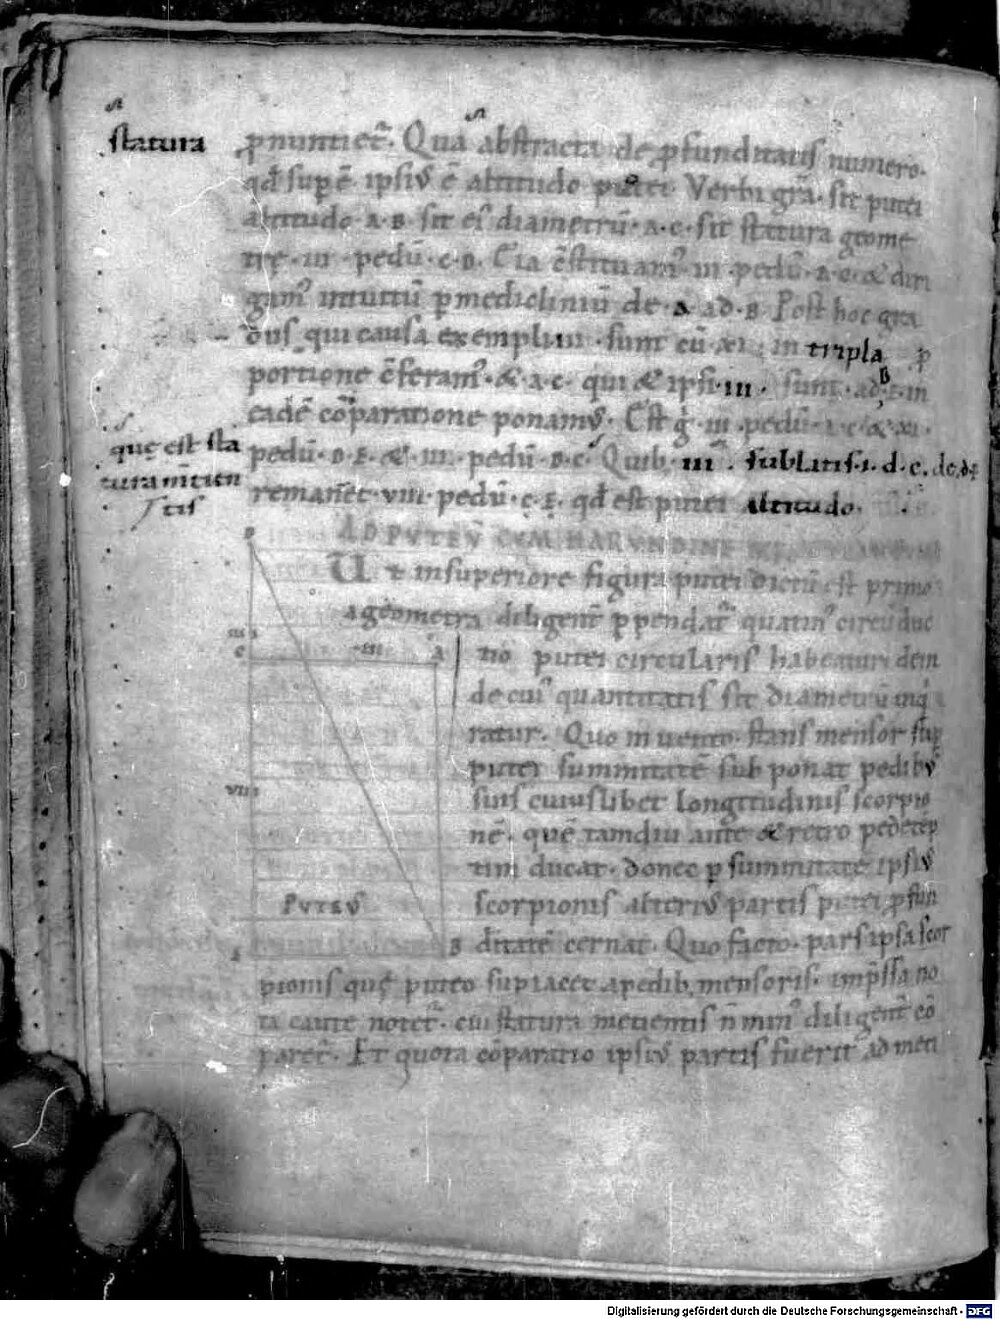 statura
pnuntiet̄. Qua abstracta de pfunditatis numero.
qd̄ supē ipsiꝰ ē altitudo putei Verbi grā. sit putei
altitudo . A . B . sit ei diametrū . A . C . sit statura geome
trę . III . pedū . C . D .
gamꝰ intuitū p medicliniū de . A ad . B . Post hoc gra
dus qui causa exempli sunt cū in tripla p
portione c̄feramꝰ . & A . C . qui & ipsi III . sunt . ad B
eadē cōparatione ponamꝰ . Est g̊ . III . pedū
quę est sta
tura metien
tis
pedū . & . III . pedū . D . C . Quib; III . sublatis . i . d . c . de . d
remanet . VIII . pedū . C . E . qd̄ est putei altitudo .
AD PVTEV̄ CVM HARVNDINE
Ut in superiore figura putei dictū est primo
a geometra diligent̄ ppendat̄ quatinꝰ circū duc
tio putei circularis habeatur dein
de cuiꝰ quantitatis sit diametrū inq
ratur . Quo invento . stans mensor sup
putei summitatē sub ponat pedibꝰ
suis cuiuslibet longitudinis scorpio
nē . quē tamdiu ante & retro pedetēp
tim ducat . donec p summitatē ipsiꝰ
scorpionis alteriꝰ partis putei pfun
ditatē cernat . Quo facto . pars ipsa scor
pionis quę puteo supiacet a pedib; mensoris . imp̄ssa no
ta caute notet̄ . cui statura metientis n̄ minꝰ diligent̄ cō
paret̄ . Et quota cōparatio ipsiꝰ partis fuerit ad meti
C
III
A
VIII
PVTEVS
B
Digitalisierung gefördert durch die Deutsche Forschungsgemeinschaft - DFG